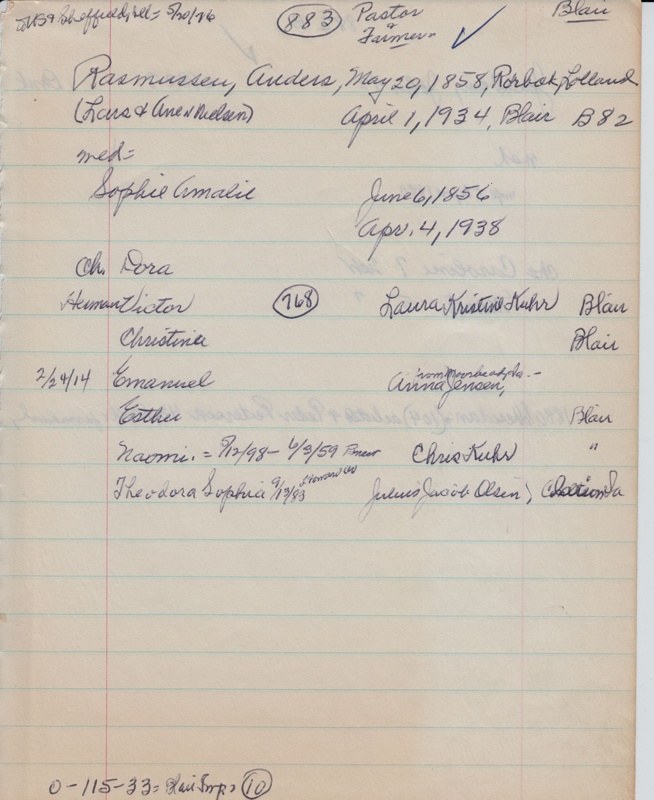 Sheffield, Ill = 5/20/76 (883) Pastor & Farmer Blair
Rasmussen, Anders, May 29, 1858, Rorbok, Lolland
(Lars & Ane Nielsen) April 1, 1934, Blair B82
med=
Sophie Amalie June 6, 1856
Apr. 4, 1938
Ch. Dora
Herman Victor (768) Laura Kristine Kuhr Blair
Christina Blair
2/24/14 Emanuel Anna Jensen,
Esther Blair
Naomi. = 5/12/98 - 6/3/59 Chris Kuhr "
Theodora Sophia 9/13/83 Julius Jacob Olsen, Ia
0-115-33 = Blair (10)